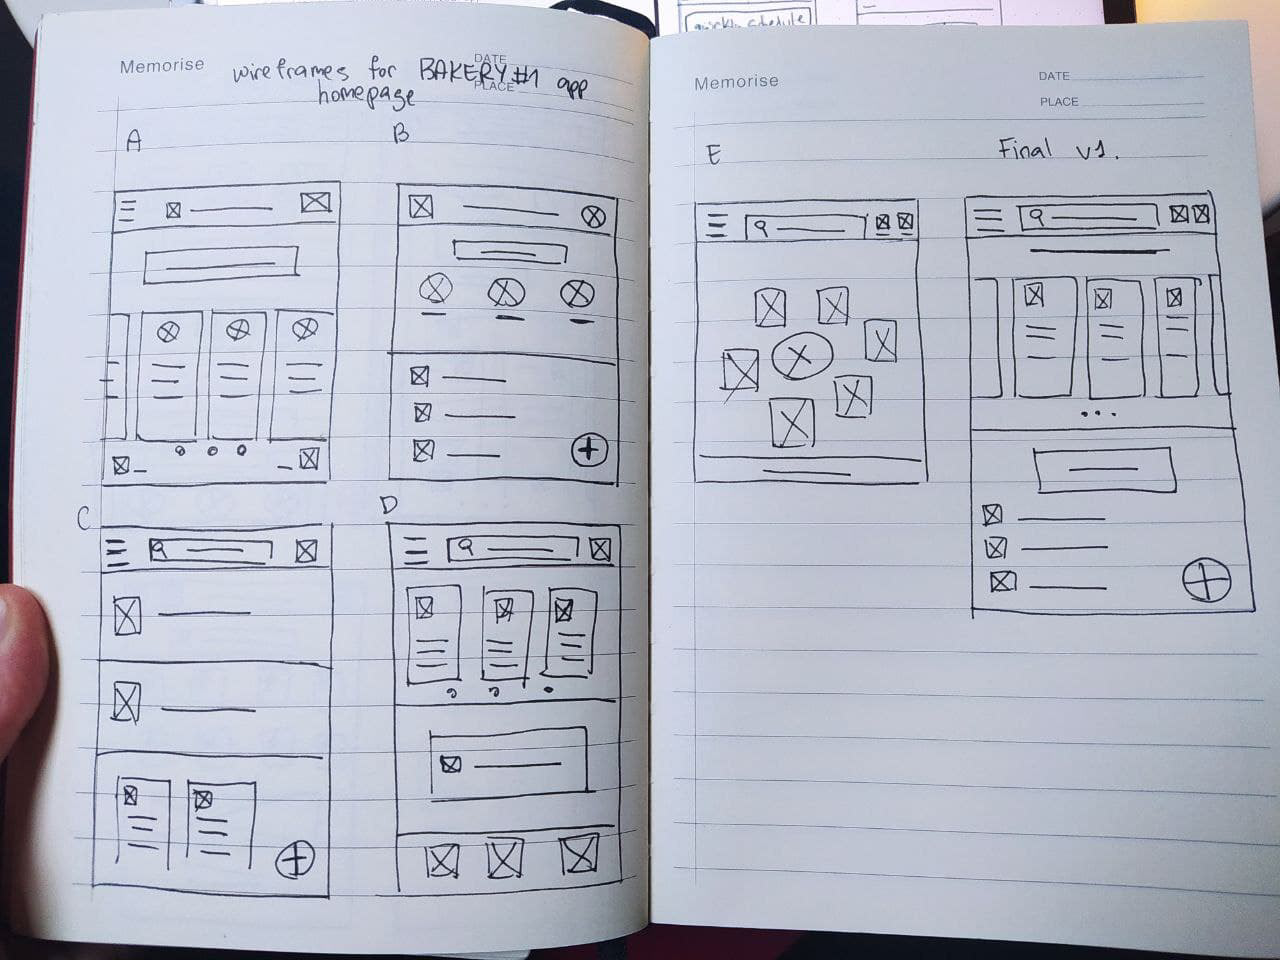 quickly schedule
Memorise
DATE
PLACE
wireframes for BAKERY#1 app
homepage
A
B
C
D
Memorise
DATE
PLACE
E
Final v1.